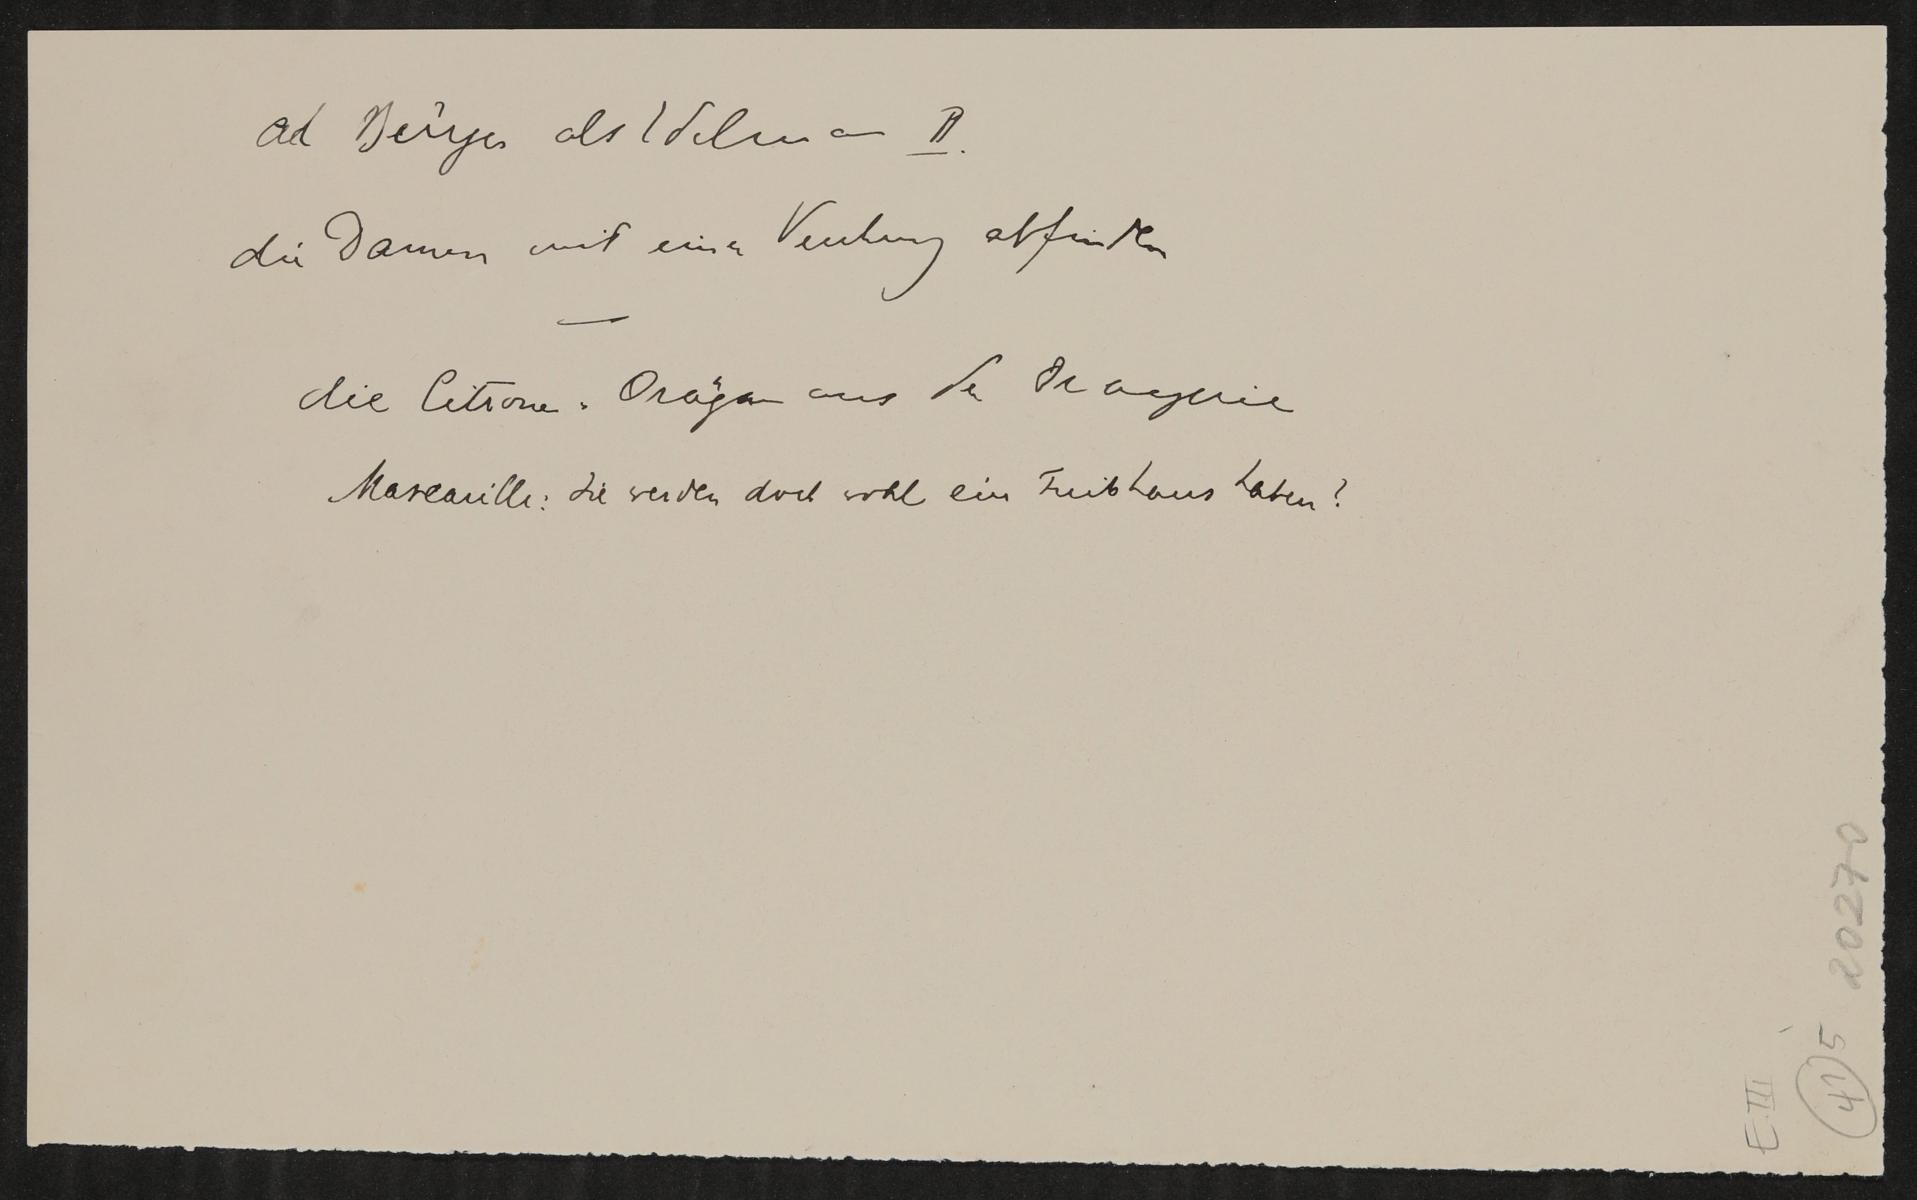 ad Bürger als Edelmann II.
die Damen mit einer abfinden
die Citronen. Orangen aus der
Mascarille: Sie werden doch wohl ein Treibhaus haben?
E III
41 5
20270